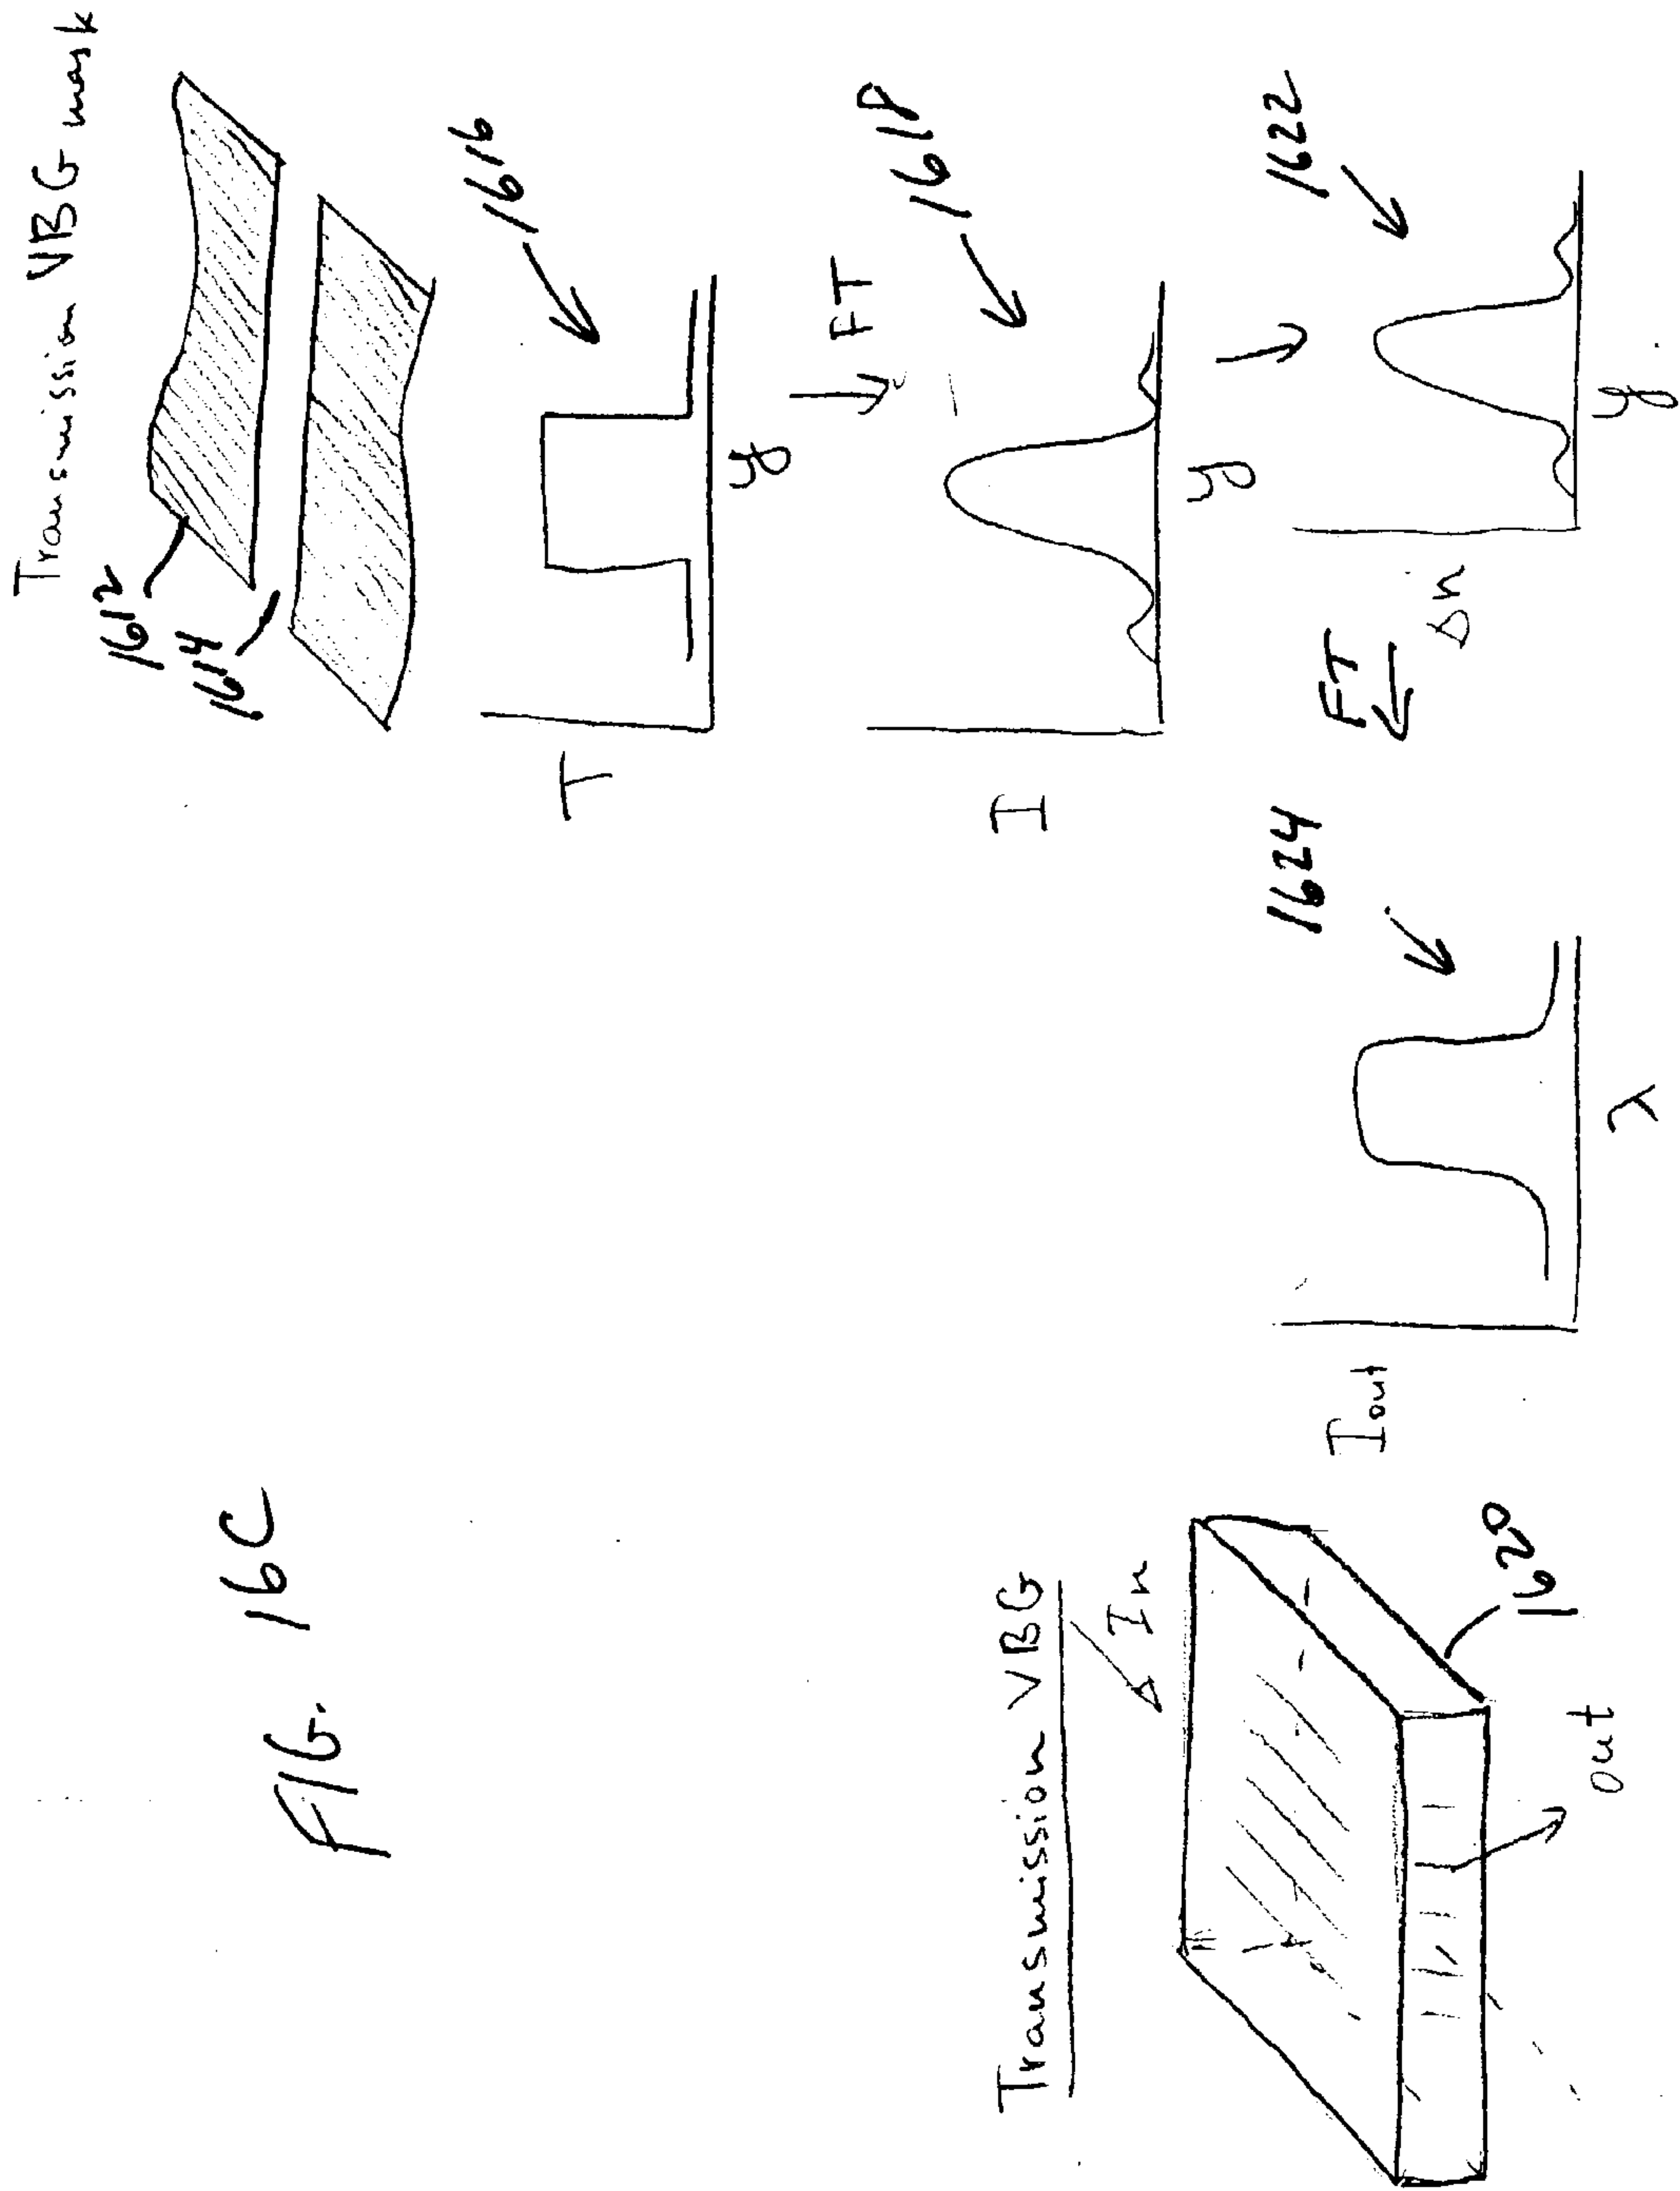 FIG. 16C
Transmission VBG mask
1612
1614
1616
T
y
FT
1618
I
y
1622
Δn
y
FT
1624
Iout
λ
Transmission VBG
In
1620
out